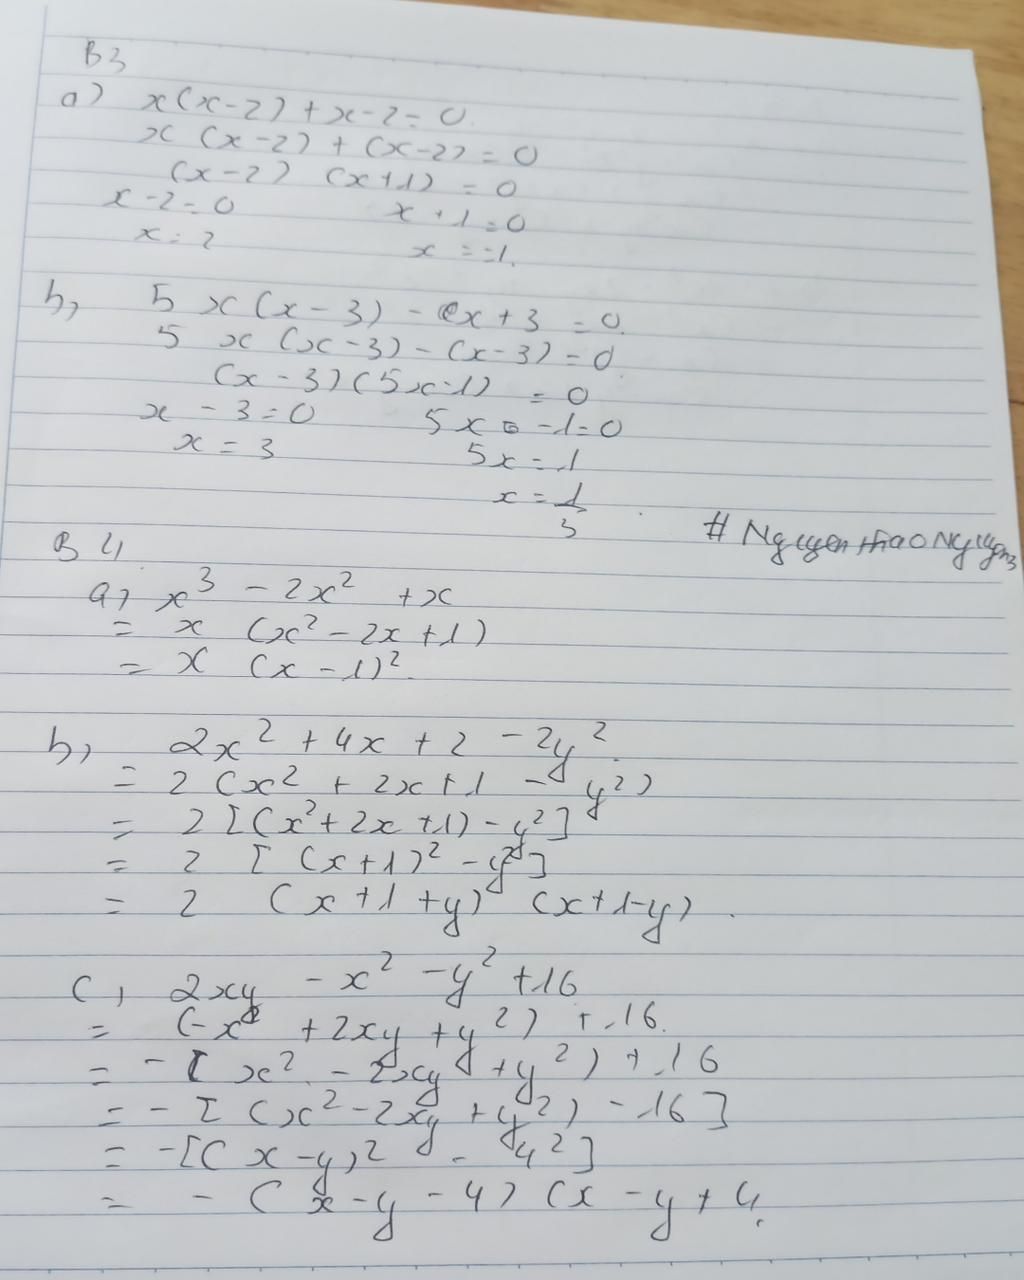 B3
a) x(x-2) + x-2 = 0.
x (x-2) + (x-2) = 0
(x-2) (x+1) = 0
x-2=0 x+1=0
x=2 x=-1.
b, 5x(x-3) - x+3 = 0.
5x (x-3) - (x-3) = 0
(x-3)(5x-1) = 0
x-3=0 5x-1=0
x=3 5x=1
x=1/3
# Nguyen thao Nguyen
B4
a, x³ - 2x² + x
= x (x² - 2x + 1)
= x (x-1)².
b, 2x² + 4x + 2 - 2y²
= 2 (x² + 2x + 1 - y²)
= 2 [(x² + 2x + 1) - y²]
= 2 [(x+1)² - y²]
= 2 (x+1+y) (x+1-y).
c, 2xy - x² - y² + 16
= (-x² + 2xy + y²) + 16.
= -[x² - 2xy + y²) + 16
= -[(x² - 2xy + y²) - 16]
= -[(x-y)² - 4²]
= - (x-y-4) (x-y+4.